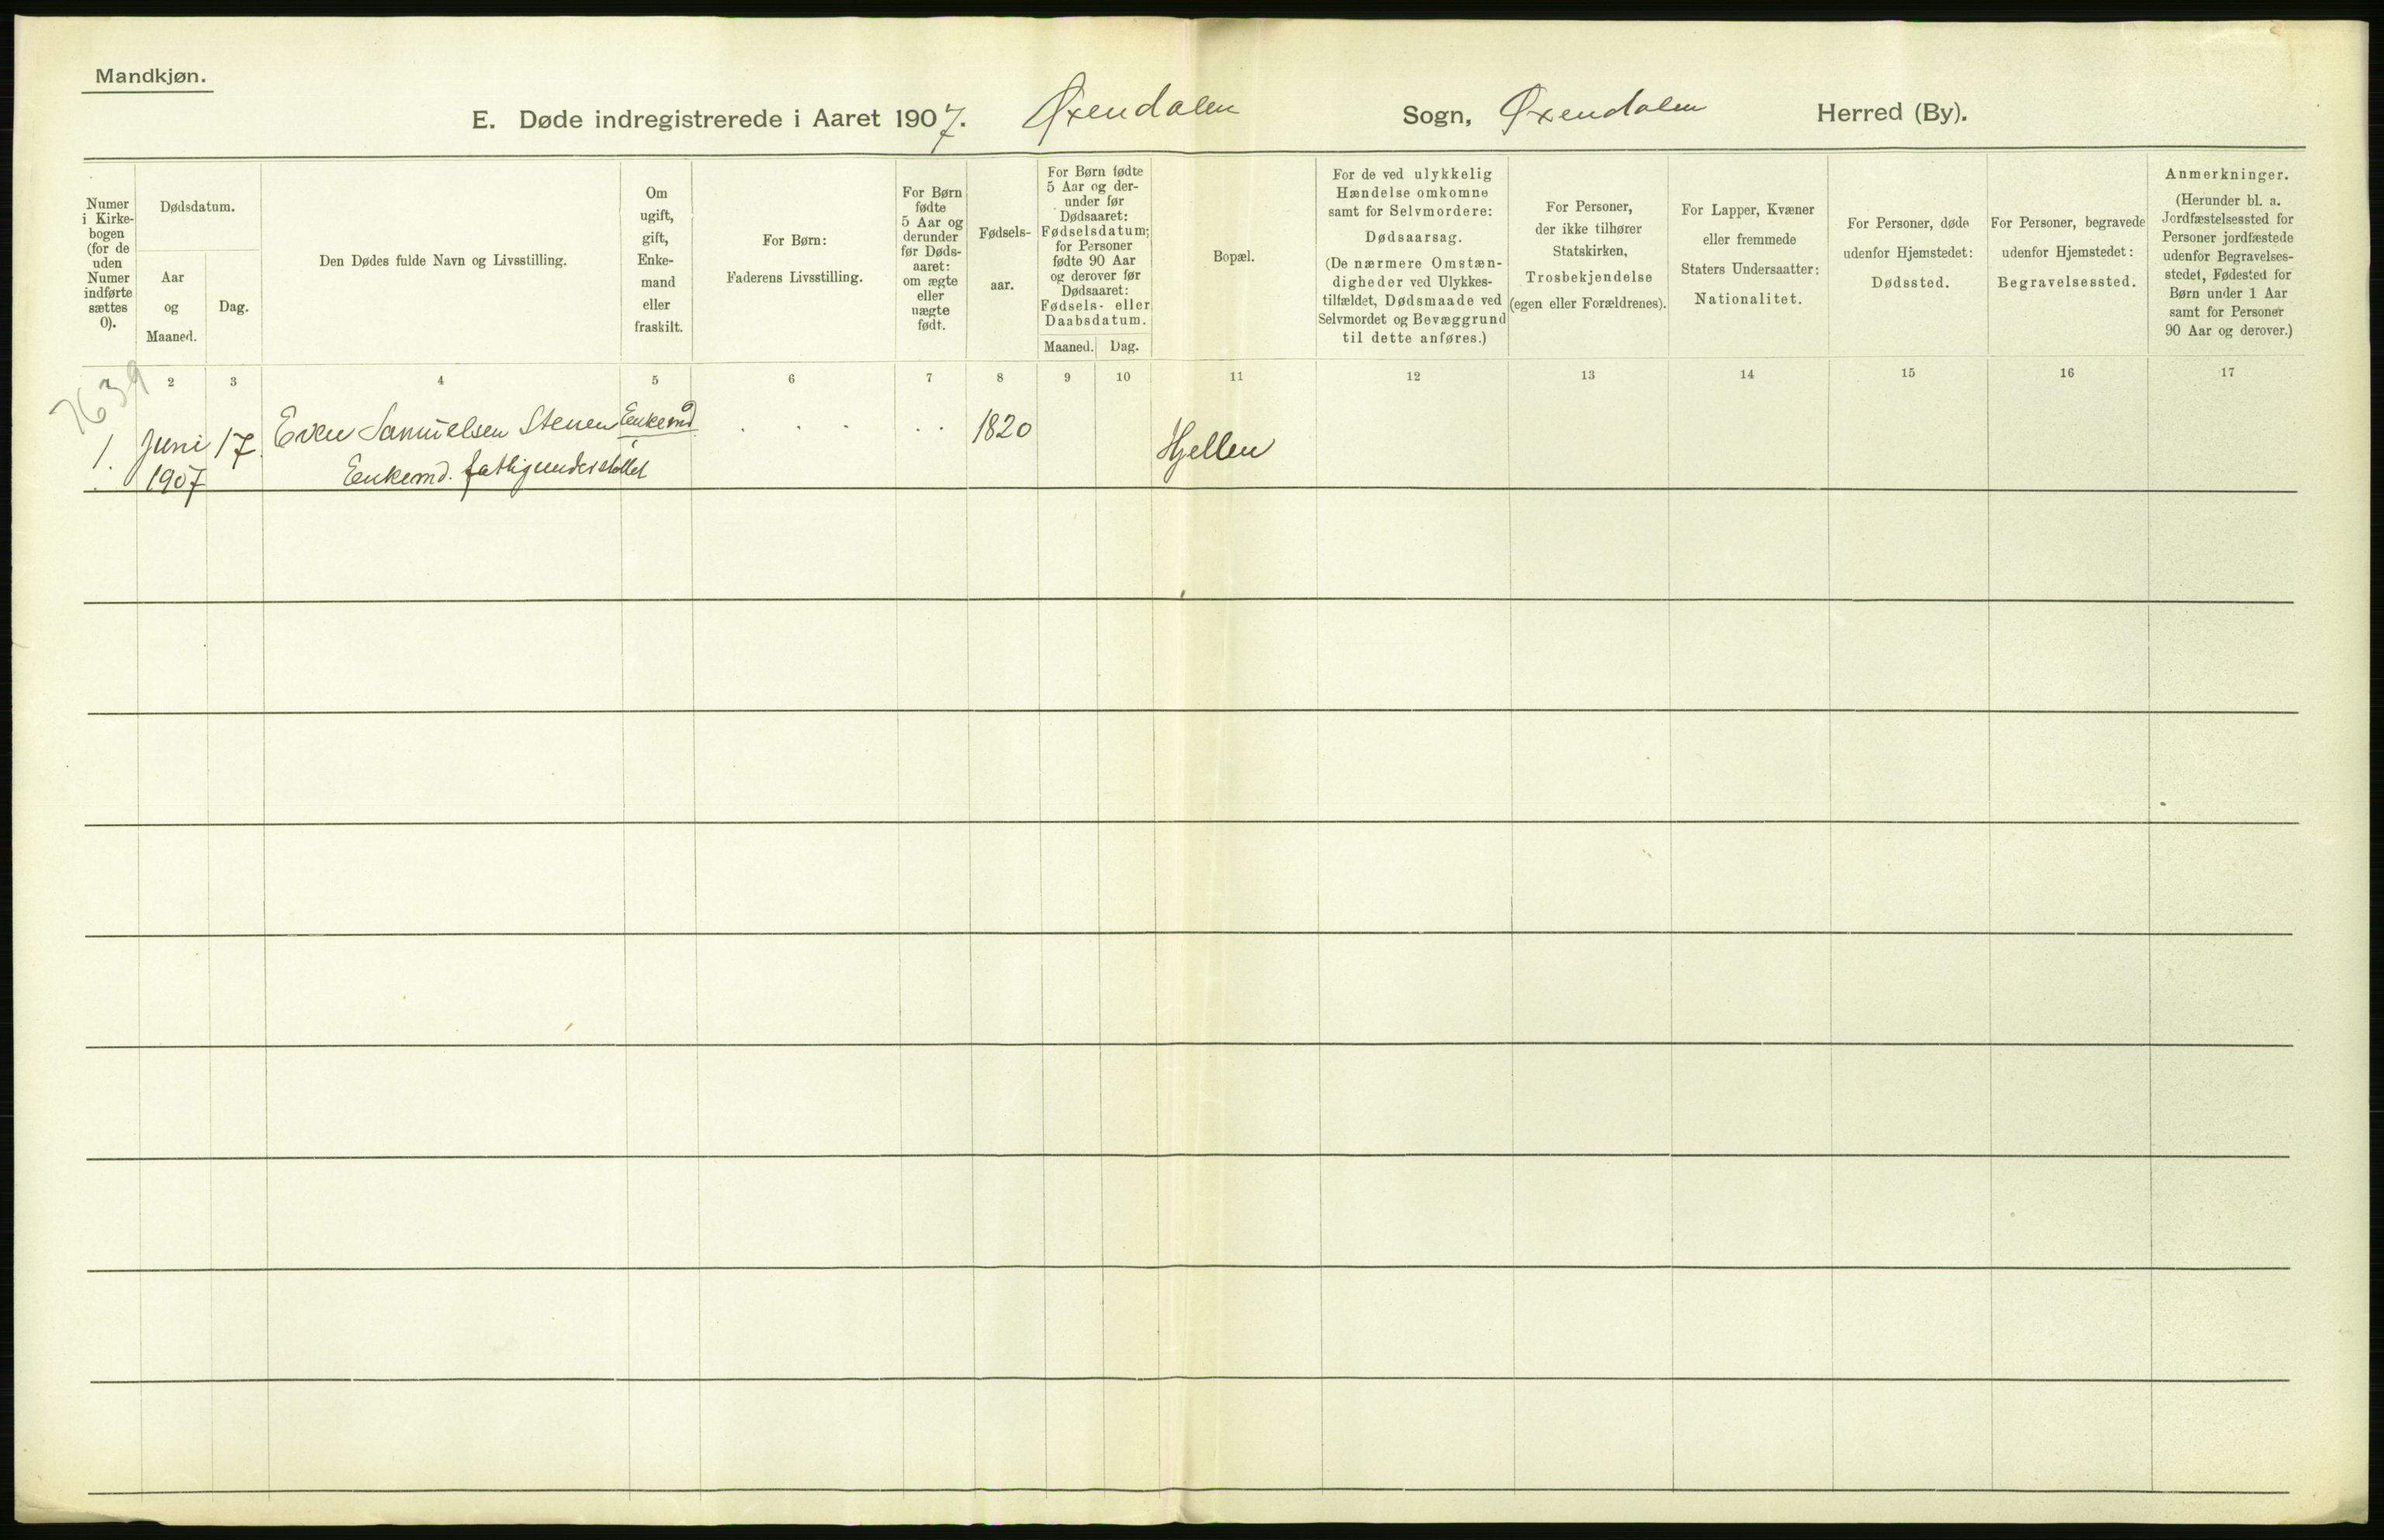 Mandkjøn.
E. Døde indregistrerede i Aaret 1907. Øxendalen Sogn, Øxendalen Herred (By).
Numer
i Kirke-
bogen
(for de
uden
Numer
indførte
sættes
0).
Dødsdatum.
Aar
og
Maaned.
Dag.
Den Dødes fulde Navn og Livsstilling.
Om
ugift,
gift,
Enke-
mand
eller
fraskilt.
For Børn:
Faderens Livsstilling.
For Børn
fødte
5 Aar og
derunder
før Døds-
aaret:
om ægte
eller
uægte
født.
Fødsels-
aar.
For Børn fødte
5 Aar og der-
under før
Dødsaaret:
Fødselsdatum;
for Personer
fødte 90 Aar
og derover før
Dødsaaret:
Fødsels- eller
Daabsdatum.
Maaned. Dag.
Bopæl.
For de ved ulykkelig
Hændelse omkomne
samt for Selvmordere:
Dødsaarsag.
(De nærmere Omstæn-
digheder ved Ulykkes-
tilfældet, Dødsmaade ved
Selvmordet og Bevæggrund
til dette anføres.)
For Personer,
der ikke tilhører
Statskirken,
Trosbekjendelse
(egen eller Forældrenes).
For Lapper, Kvæner
eller fremmede
Staters Undersaatter:
Nationalitet.
For Personer, døde
udenfor Hjemstedet:
Dødssted.
For Personer, begravede
udenfor Hjemstedet:
Begravelsessted.
Anmerkninger.
(Herunder bl. a.
Jordfæstelsessted for
Personer jordfæstede
udenfor Begravelses-
stedet, Fødested for
Børn under 1 Aar
samt for Personer
90 Aar og derover.)
2 3 4 5 6 7 8 9 10 11 12 13 14 15 16 17
7639
1. Juni 17. Even Samuelsen Stenen Enkemd . . . . . 1820 Hjellen
1907 Enkemd. fattigunderstøttet